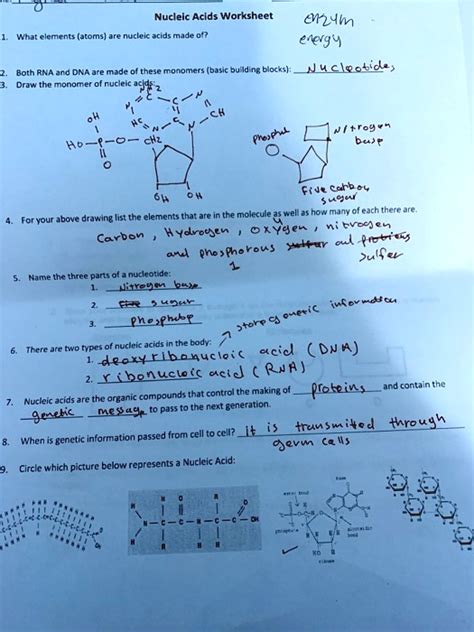 Nucleic Acids Worksheet
enzym
energy
1. What elements (atoms) are nucleic acids made of?
2. Both RNA and DNA are made of these monomers (basic building blocks): Nucleotides
3. Draw the monomer of nucleic acids:
NH2
N
C
C
N
CH
HC
N
C
N
OH
HO-P-O-CH2
O
OH OH
phosphat
Nitrogen
base
Five carbon
sugar
4. For your above drawing list the elements that are in the molecule as well as how many of each there are.
Carbon, Hydrogen, oxygen, nitrogen
and phosphorous and
sulfer
1
5. Name the three parts of a nucleotide:
1. Nitrogen base
2. sugar
3. Phosphate
store genetic information
6. There are two types of nucleic acids in the body:
1. deoxyribonucloic acid (DNA)
2. ribonucleic acid (RNA)
7. Nucleic acids are the organic compounds that control the making of proteins and contain the
genetic message to pass to the next generation.
8. When is genetic information passed from cell to cell? it is transmited through
germ cells
9. Circle which picture below represents a Nucleic Acid:
H O R
H N C C N C C O OH
H R H H
phosphate
HO R
ribose